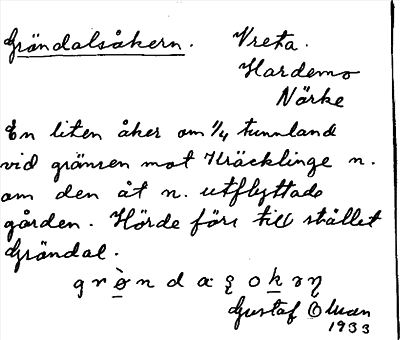 Gröndalsåkern. Vreta.
Hardemo
Närke
En liten åker om 1/4 tunnland
vid gränsen mot Kräcklinge n.
om den åt n. utflyttade
gården. Hörde förr till stället
Gröndal.
Gustaf
1933